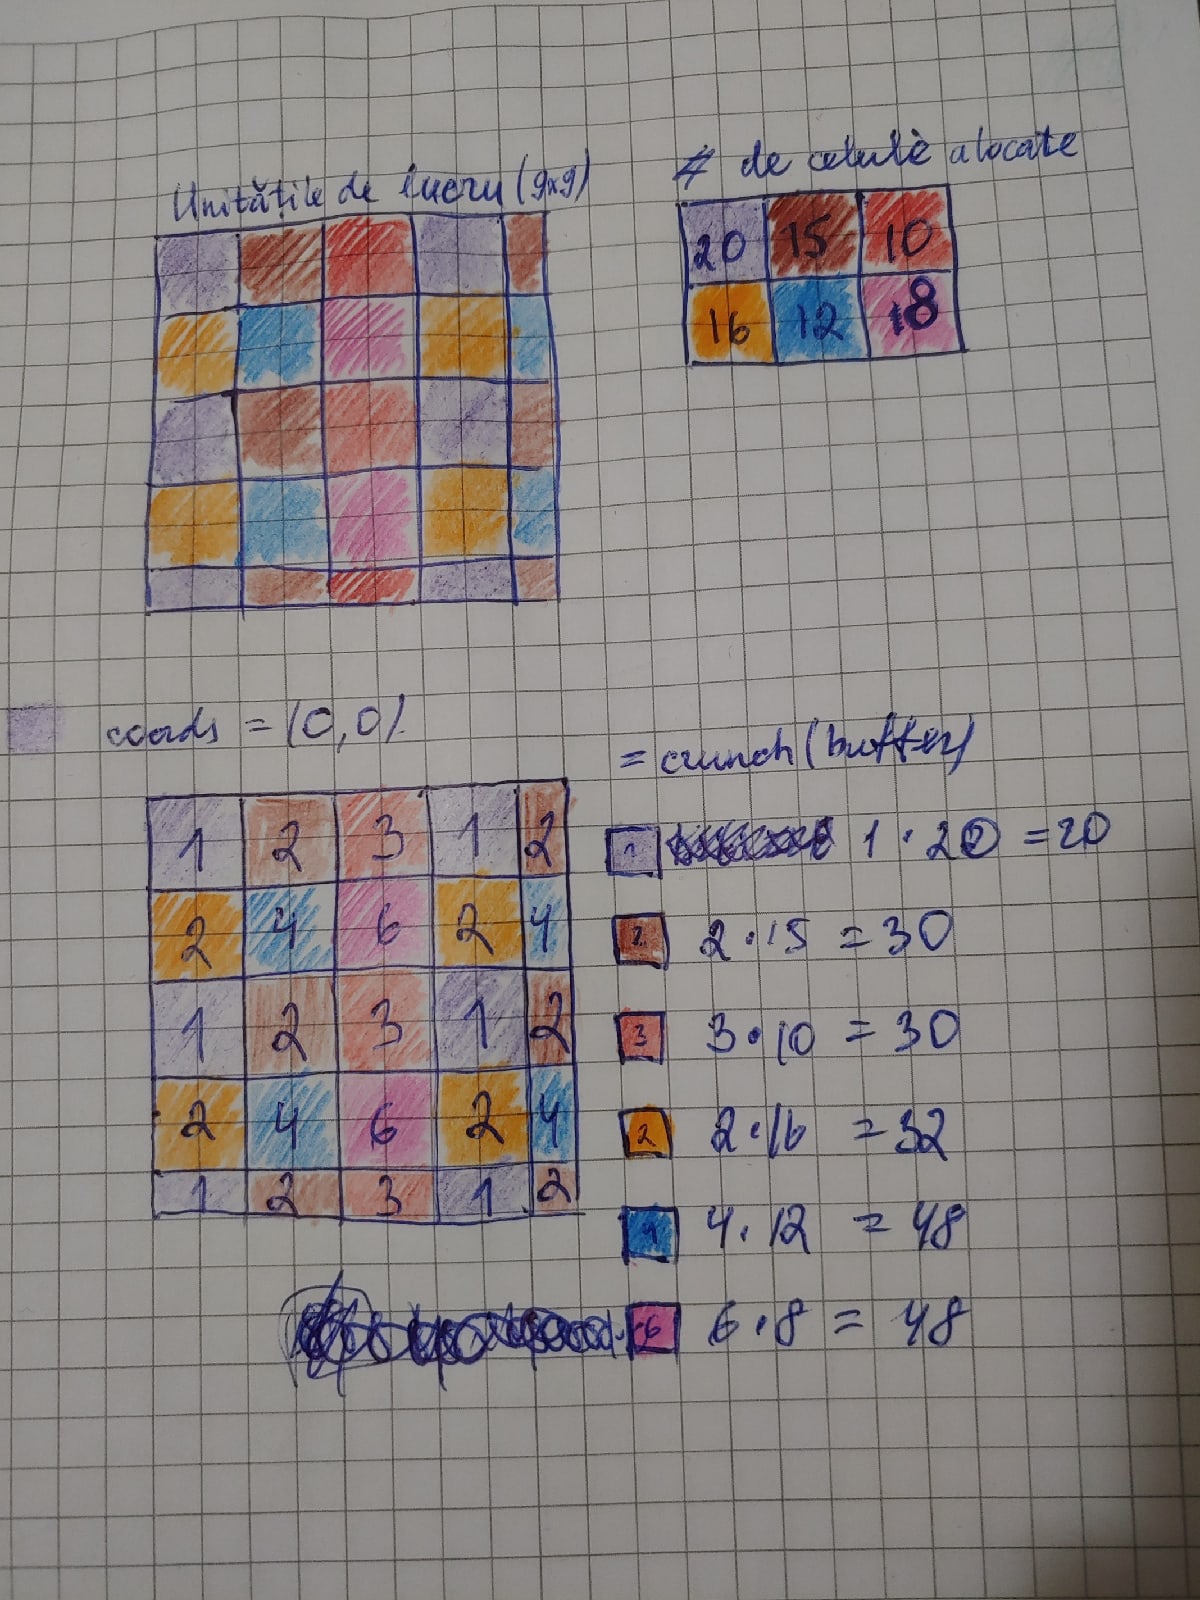 Unitățile de lucru (9x9)
# de celule alocate
20 15 10
16 12 8
coords = (0,0).
= crunch(buffer)
1 2 3 1 2
2 4 6 2 4
1 2 3 1 2
2 4 6 2 4
1 2 3 1 2
1 1 · 20 = 20
2 2 · 15 = 30
3 3 · 10 = 30
2 2 · 16 = 32
4 4 · 12 = 48
6 6 · 8 = 48